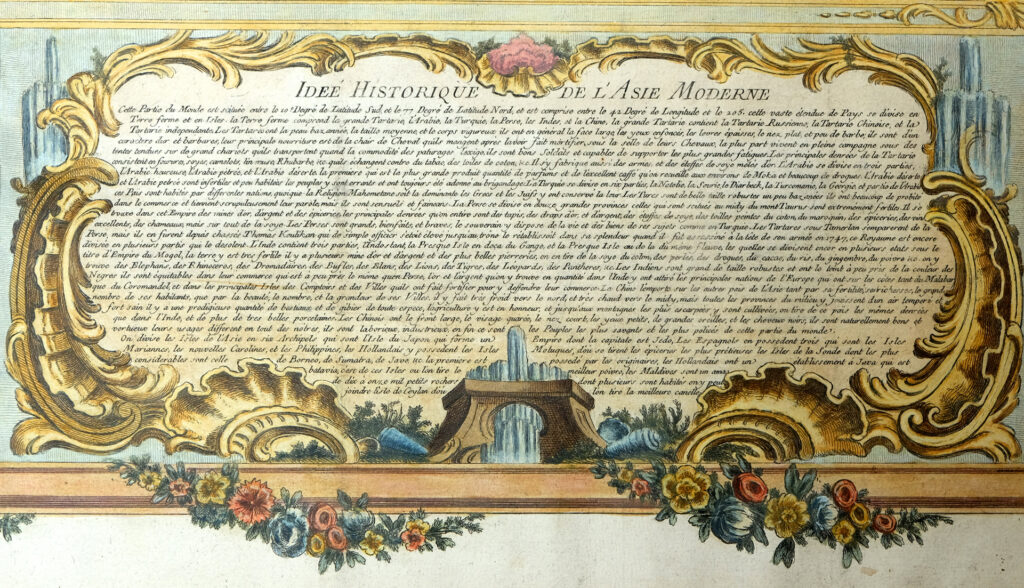 IDEÉ HISTORIQUE DE L'ASIE MODERNE
Cette Partie du Monde est scituée entre le 10e Degré de Latitude Sud, et le 77 Degré de Latitude Nord, et est comprise entre le 42 Degré de Longitude et le 205. cette vaste étendue de Pays se divise en
Terre ferme et en Isles. la Terre ferme comprend la grande Tartarie, L'Arabie, la Turquie, la Perse, les Indes, et la Chine, la grande Tartarie contient la Tartarie Russienne, la Tartarie Chinoise, et la
Tartarie independante. Les Tartares ont la peau bazannée, la taille moyenne, et le corps vigoureux ils ont en general la face large, les yeux enfoncés, les levres épaisses, le nez plat, et peu de barbe, ils sont d'un
caractere dur et barbares, leur principale nourriture est de la chair de Cheval qu'ils mangent apres l'avoir fait mortifier, sous la selle de leurs Chevaux, la plus part vivent en pleine campagne sous des
tentes tendues sur de grand chariots qu'ils transportent quand la commodité de paturage l'exige, ils sont bons Soldats et capables de supporter les plus grandes fatigues. Les principales denrées de la Tartarie
consistent en fourures, soyes, camelots, lin, musc, Rhubarbe, &c. qu'ils échangent contre du tabac, des toiles de coton, &c. Il s'y fabrique aussi des armes, et des étoffes de soye mêlés d'or. L'Arabie se divise en trois parties,
L'Arabie heureuse, L'Arabie petrée, et L'Arabie deserte, la premiere qui est la plus grande produit quantité de parfums et de l'excellent caffé qu'on recueille aux environs de Moka et beaucoup de drogues. L'Arabie deserte
et L'Arabie petrée sont infertiles et peu habitées les peuples y sont errants et ont toujours été adonné au brigandage. La Turquie se divise en six parties, la Natolie, la Sourie, le Diarbeck, la Turcomanie, la Georgie, et partie de L'Arabie
ces Païs sont habités par differentes nations, quoique la Religion Mahometane soit la dominante les Grecs et les Juifs y ont conservé la leur. Les Turcs sont de belle taille robustes un peu bazannés ils ont beaucoup de probité
dans le commerce et tiennent scrupuleusement leur parole, mais ils sont sensuels et faineans. La Perse se divise en douze grandes provinces celles qui sont scitués au midy du mont Taurus sont extremement fertile. Il se
trouve dans cet Empire des mines d'or, d'argent et des épiceries, les principales denrées qu'on entire sont des tapis, des draps d'or et d'argent, des étoffes de soye, des toilles peintes du coton, du maroquin, des épiceries, des vins
excellents, des chamaux, mais sur tout de la soye. Les Perses sont grands, bienfaits, et braves, le souverain y dispose de la vie et des biens de ses sujets comme en Turquie. Les Tartares sous Tamerlan s'emparerent de la
Perse, mais ils en furent depuis chassés Thamas Koulikan qui de simple officier s'étoit élevé jusqu'au trône le rétablissoit dans sa splendeur quand il fût assassiné à la tête de son armée en 1747, ce Royaume est encore
divisée en plusieurs partis qui le desolent. L'Inde contient trois parties, L'Indostant, la Presque Isle en deça du Gange, et la Presque Isle au de la du même fleuve, les quelles se divisent encor en plusieurs etats sous le
titre d'Empire du Mogol, la terre y est tres fertile il y a plusieurs mine d'or et d'argent et des plus belles pierreries, on en tire de la soye du coton, des perles, des drogues, du cacao, du ris, du gingembre, du poivre &c. on y
trouve des Elephans, des Rhinoceros, des Dromadaires, des Bufles, des Elans, des Lions, des Tigres, des Léopards, des Pantheres, &c. Les Indiens sont grand de taille robustes et ont le teint à peu prés de la couleur des
Negres ils sont équitables dans leur commerce qui est à peu prés le même qu'en Perse, l'or et l'argent qu'on y trouve en quantité dans l'Inde y ont attiré les principalles nations de l'Europe qui ont sur les côtes tant du Malabar
que du Coromandel, et dans les principales Isles des Comptoirs et des Villes qu'ils ont fait fortifier pour y deffendre leur commerce. La Chine l'emporte sur les autres païs de l'Asie tant par sa fertilité, ses richesses, le grand
nombre de ses habitants, que par la beauté, le nombre, et la grandeur de ses Villes. il y fait très froid vers le nord, et très chaud vers le midy, mais toutes les provinces du milieu y jouissent d'un air temperé et
fort sain il y a une prodigieuse quantité de bestiaux et de gibier de toute espece, l'agriculture y est en honneur, et jusqu'aux montagnes les plus escarpées y sont cultivées, on tire de ce païs les mêmes denrées
que dans l'Inde, et de plus de tres belles porcelaines. Les Chinois ont le front large, le visage quarré, le nez court, les yeux petits, de grandes oreilles, et les cheveux noirs, ils sont naturellement bons et
vertueux leurs usages different en tout des notres, ils sont laborieux, industrieux, en fin ce sont les Peuples les plus savants et les plus policés de cette partie du monde.
On divise les Isles de l'Asie en six Archipels qui sont l'Isle du Japon qui forme un Empire dont la capitale est Jedo, Les Espagnols en possedent trois qui sont les Isles
Mariannes, les nouvelles Carolines, et les Philippines, les Hollandais y possedent les Isles Moluques, d'ou se tirent les épiceries les plus prétieuses les Isles de la Sonde dont les plus
considerables sont celles de Borneo, de Sumatra, de Java &c. la premiere est possedé par les originaires, les Hollandais ont un établissement à Java qui est
batavia, c'est de ces Isles ou l'on tire le meilleur poivre, les Maldives sont un amas
de dix à onze mil petits rochers dont plusieurs sont habités on y peut
joindre l'Isle de Ceylan d'où l'on tire la meilleure canelle